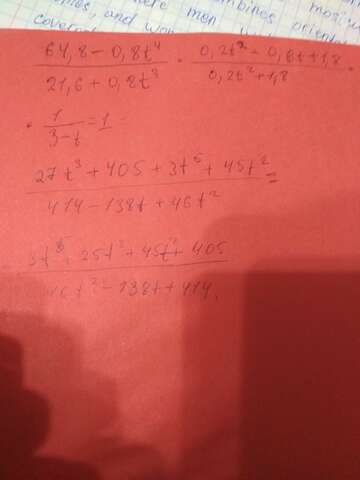 combines orientei
coveral
64,8-0,8t⁴ / 21,6+0,8t³ · 0,2t²-0,6t+1,8 / 0,2t²+1,8 ·
· 1 / 3-t = 1
27t³+405+3t⁵+45t² / 414-138t+46t² =
3t⁵ 25t³+45t²+405
46t²-138t+414